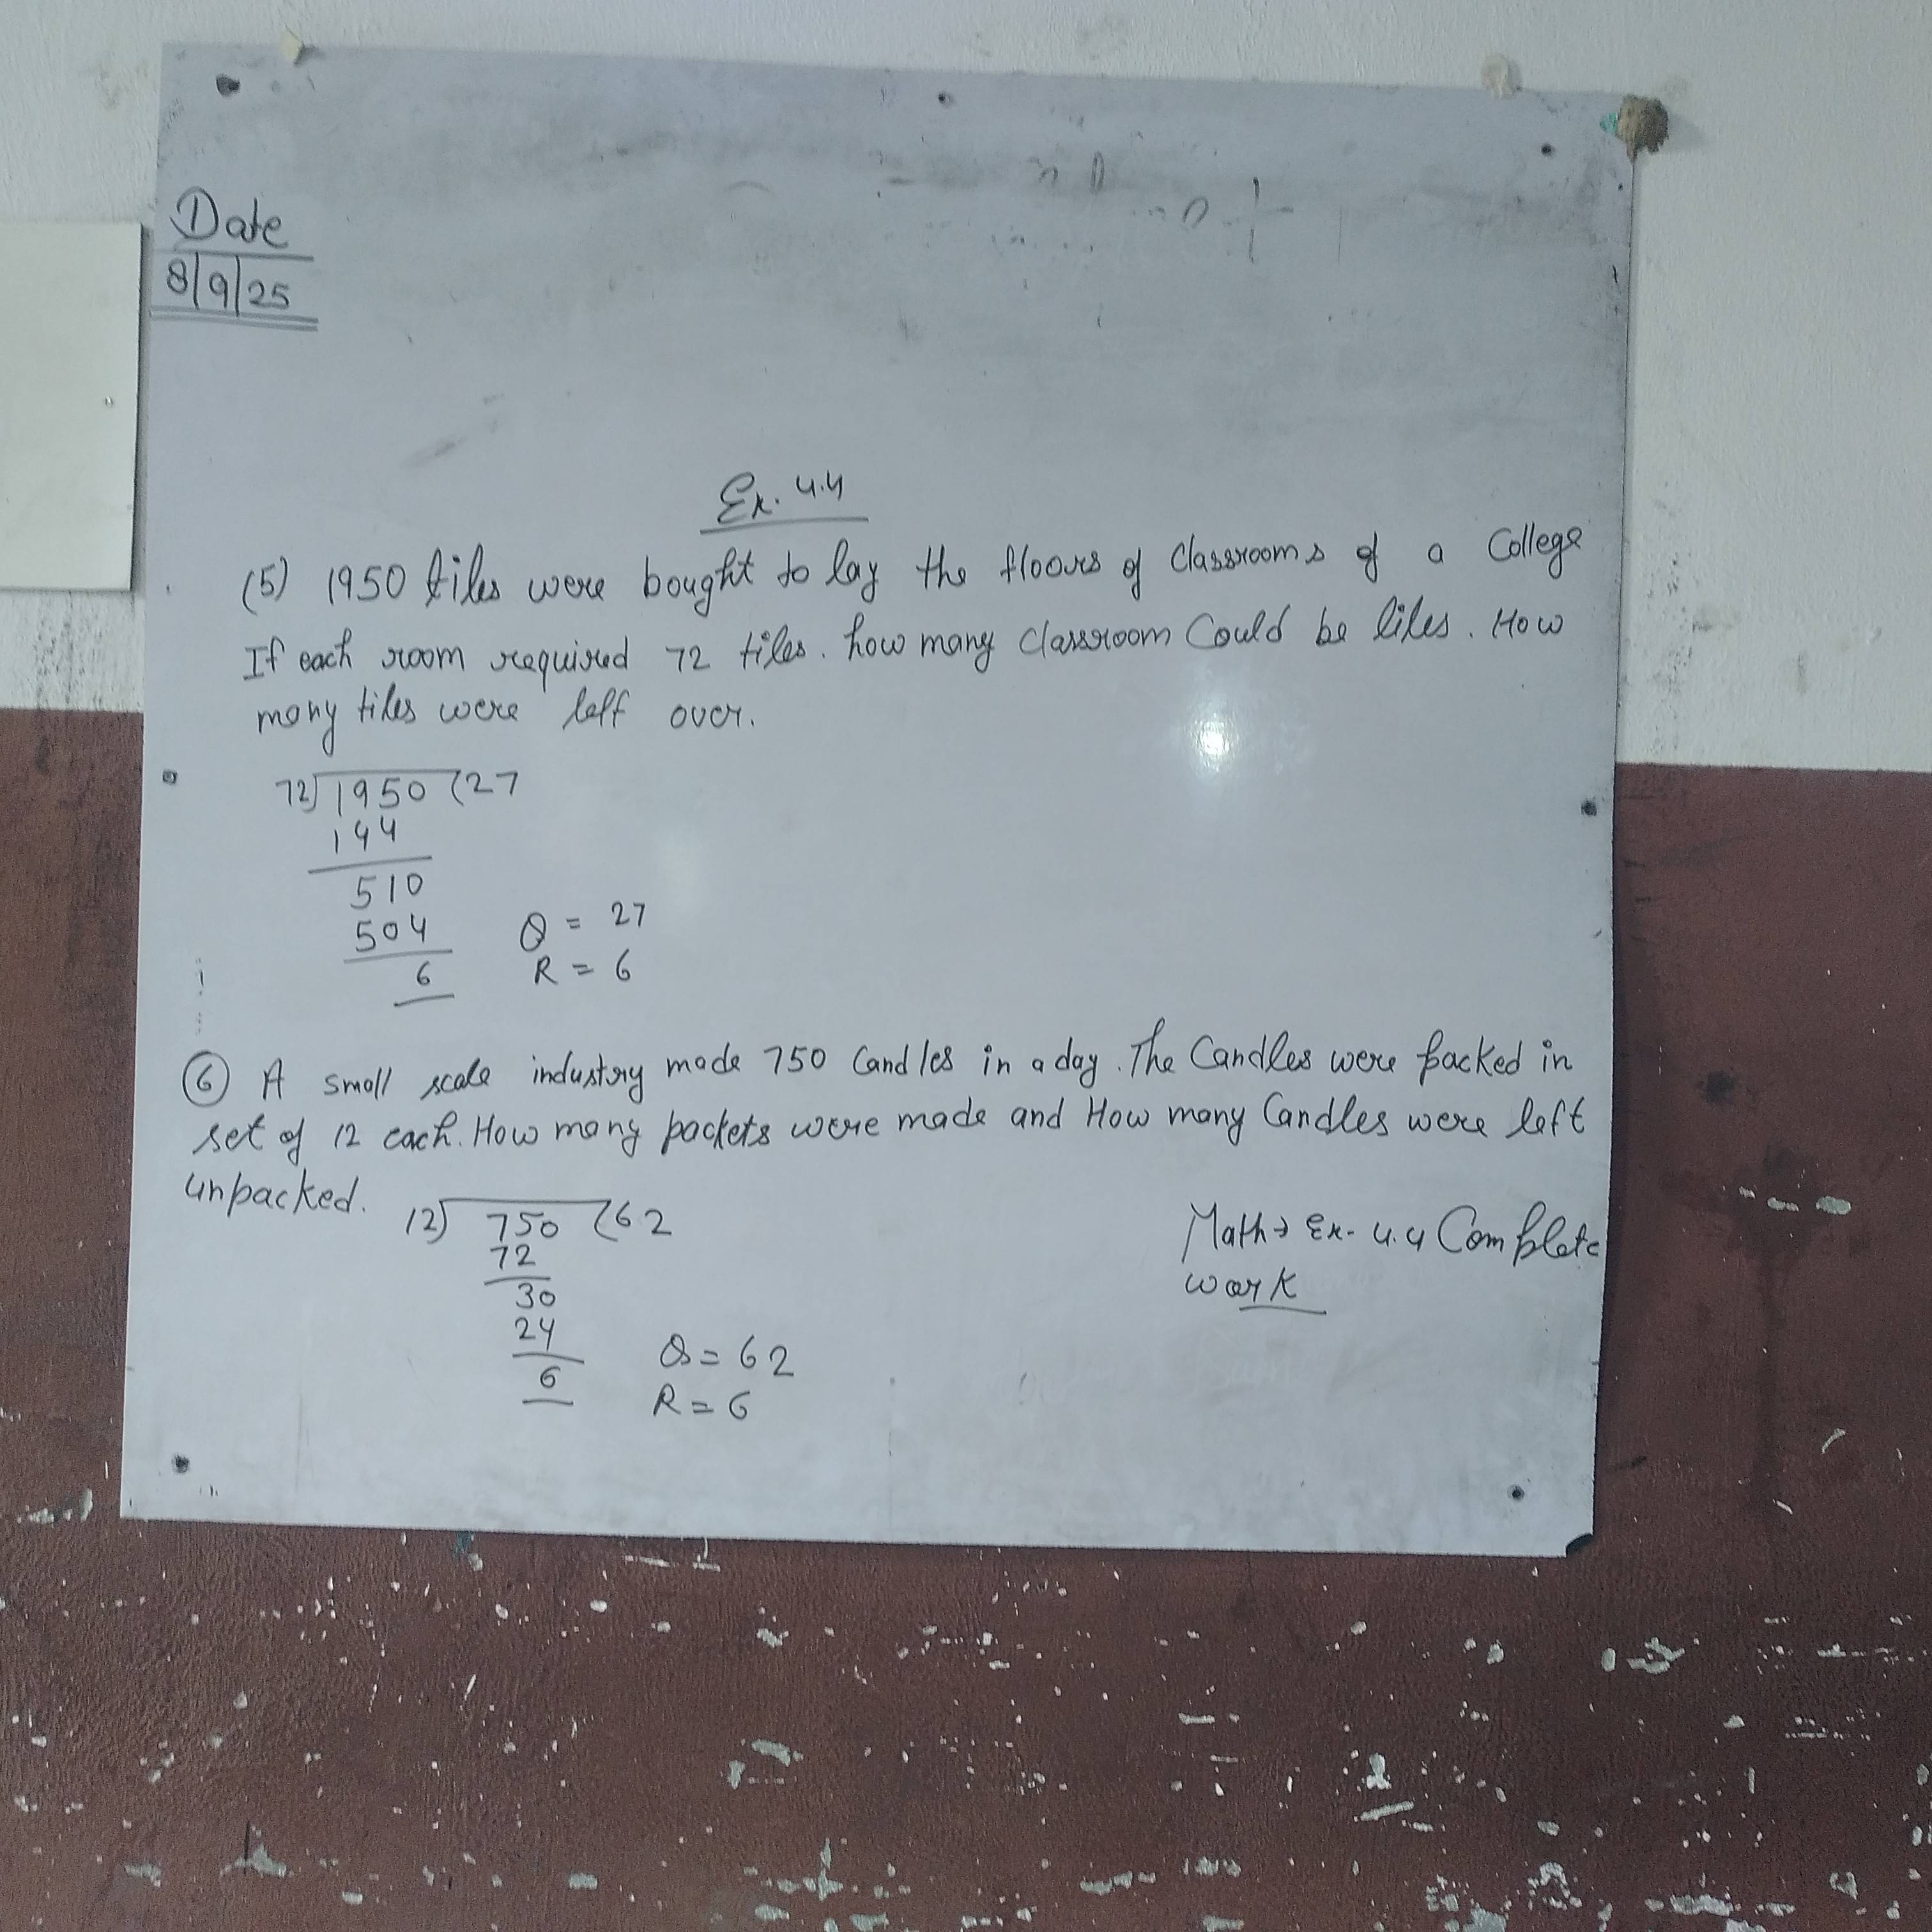 Date
8/9/25
Ex. 4.4
(5) 1950 tiles were bought to lay the floors of classrooms of a College
If each room required 72 tiles. how many classroom Could be liles. How
many tiles were left over.
72) 1950 (27
144
510
504
6
Q = 27
R = 6
(6) A small scale industry made 750 Candles in a day. The Candles were packed in
set of 12 each. How many packets were made and How many Candles were left
unpacked.
12) 750 (62
72
30
24
6
Q = 62
R = 6
Math → Ex- 4.4 Complete
work